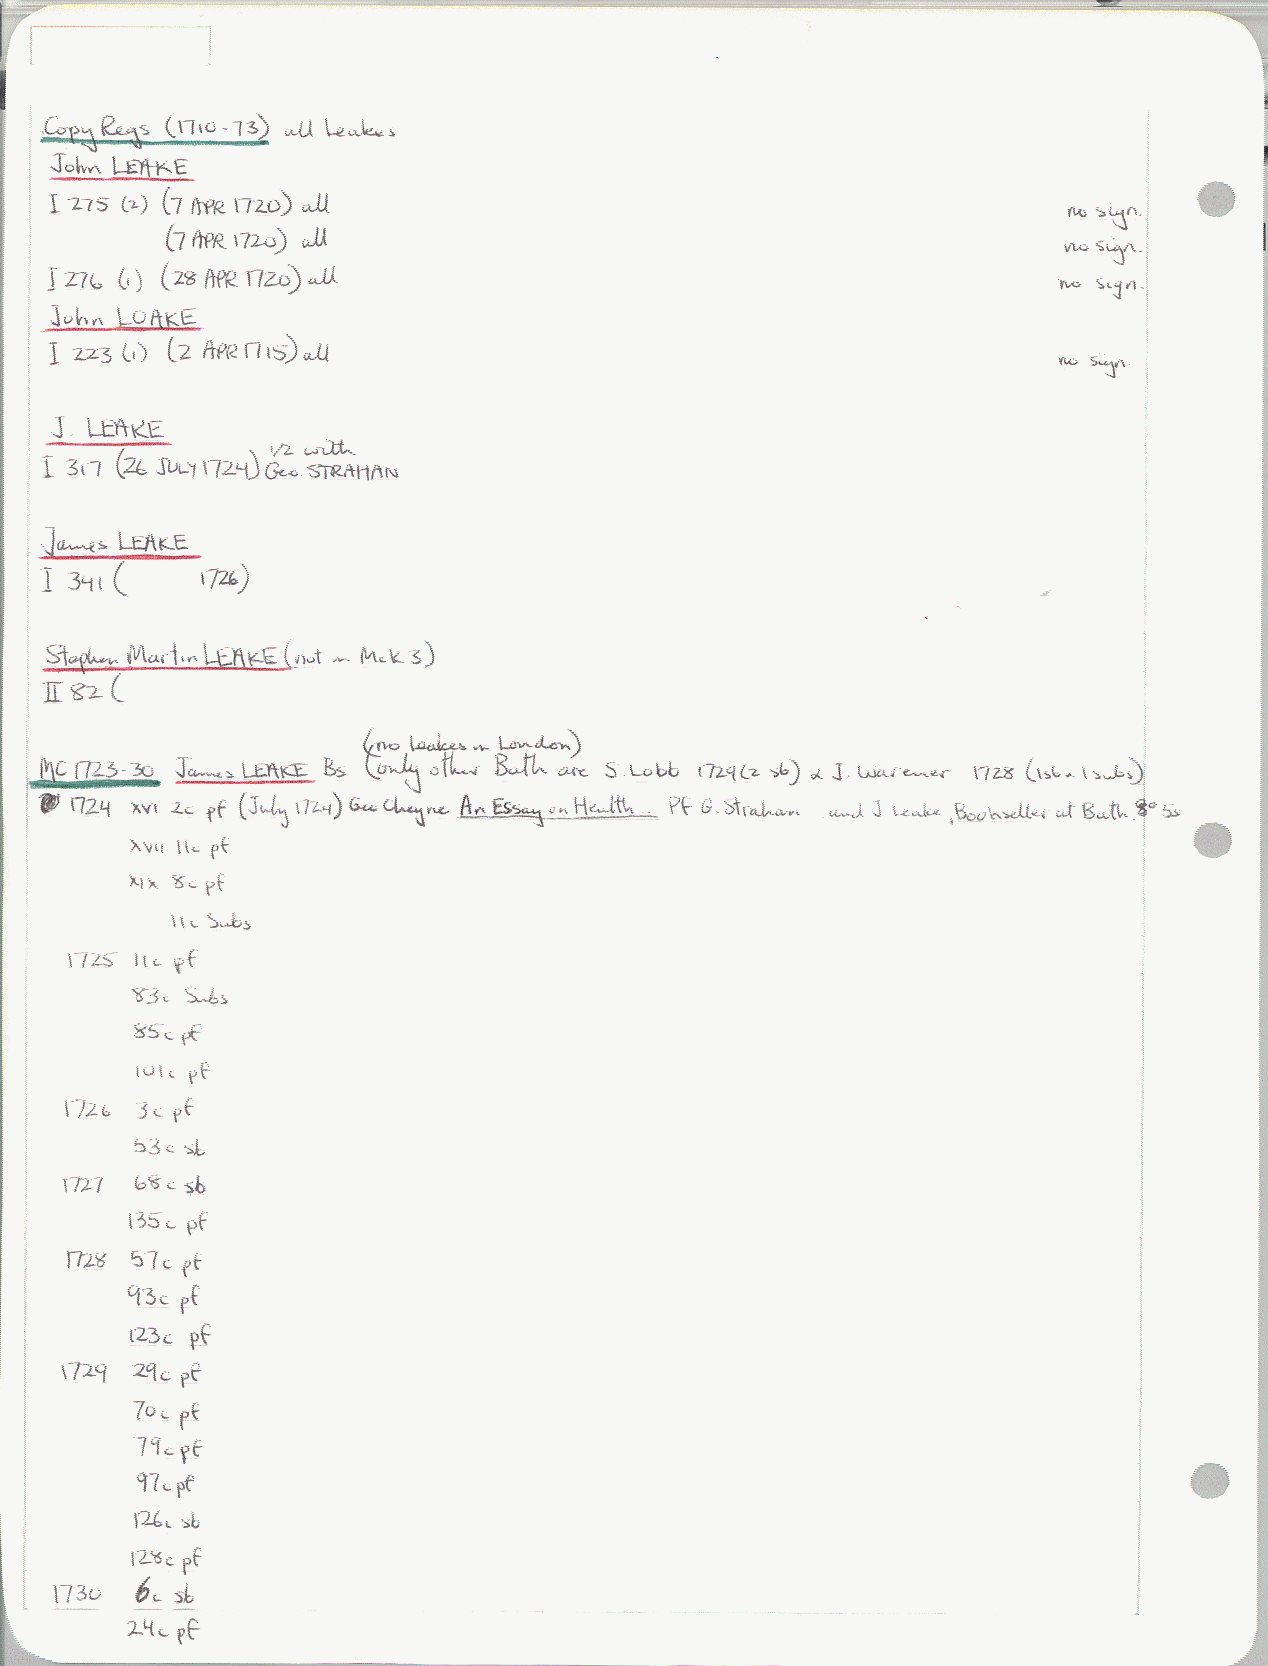 Copy Regs (1710-73) all Leakes
John LEAKE
I 275 (2) (7 APR 1720) all no sign.
(7 APR 1720) all no sign.
I 276 (1) (28 APR 1720) all no sign.
John LOAKE
I 223 (1) (2 APR 1715) all no sign.
J. LEAKE
1/2 with
I 317 (26 JULY 1724) Geo. STRAHAN
James LEAKE
I 341 ( 1726)
Stephen Martin LEAKE (not in McK 3)
II 82 (
(no Leakes in London)
MC 1723-30 James LEAKE Bs (only other Bath are S. Lobb 1729 (2 sb) & J. Warener 1728 (1sb & 1 subs)
1724 xvi 2c pf (July 1724) Geo Cheyne An Essay on Health Pf G. Strahan and J Leake, Bookseller at Bath. 8° 5s
xvii 11c pf
xix 8c pf
11c Subs
1725 11c pf
83c Subs
85c pf
101c pf
1726 3c pf
53c sb
1727 68c sb
135c pf
1728 57c pf
93c pf
123c pf
1729 29c pf
70c pf
79c pf
97c pf
126c sb
128c pf
1730 6c sb
24c pf